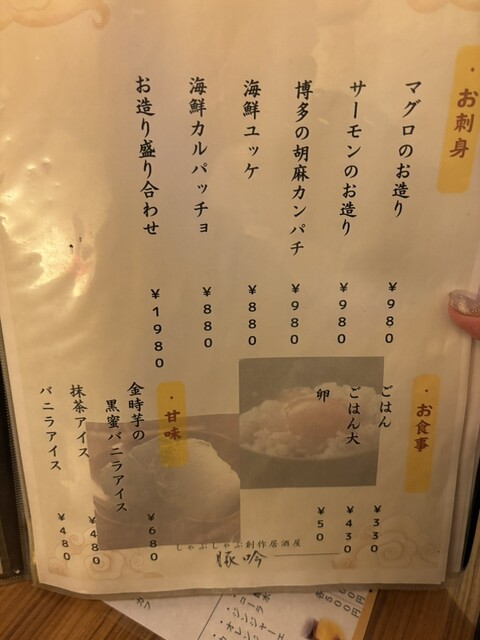 ・お刺身
マグロのお造り ¥980
サーモンのお造り ¥980
博多の胡麻カンパチ ¥980
海鮮ユッケ ¥880
海鮮カルパッチョ ¥880
お造り盛り合わせ ¥1980
・お食事
ごはん ¥330
ごはん大 ¥430
卵 ¥50
・甘味
金時芋の
黒蜜バニラアイス ¥680
抹茶アイス ¥480
バニラアイス ¥480
しゃぶしゃぶ創作居酒屋
豚吟
・コーラ
・ジンジャーエ
・オレンジ